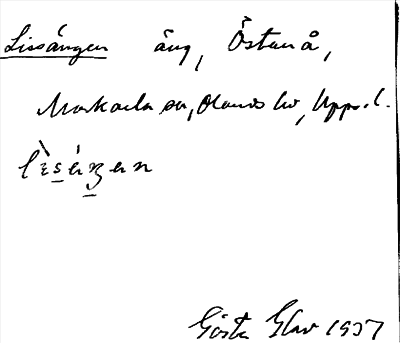 Lissängen äng, Östanå,
Morkarla sn, Olands hd, Upps. l.
Gösta Glav 1937